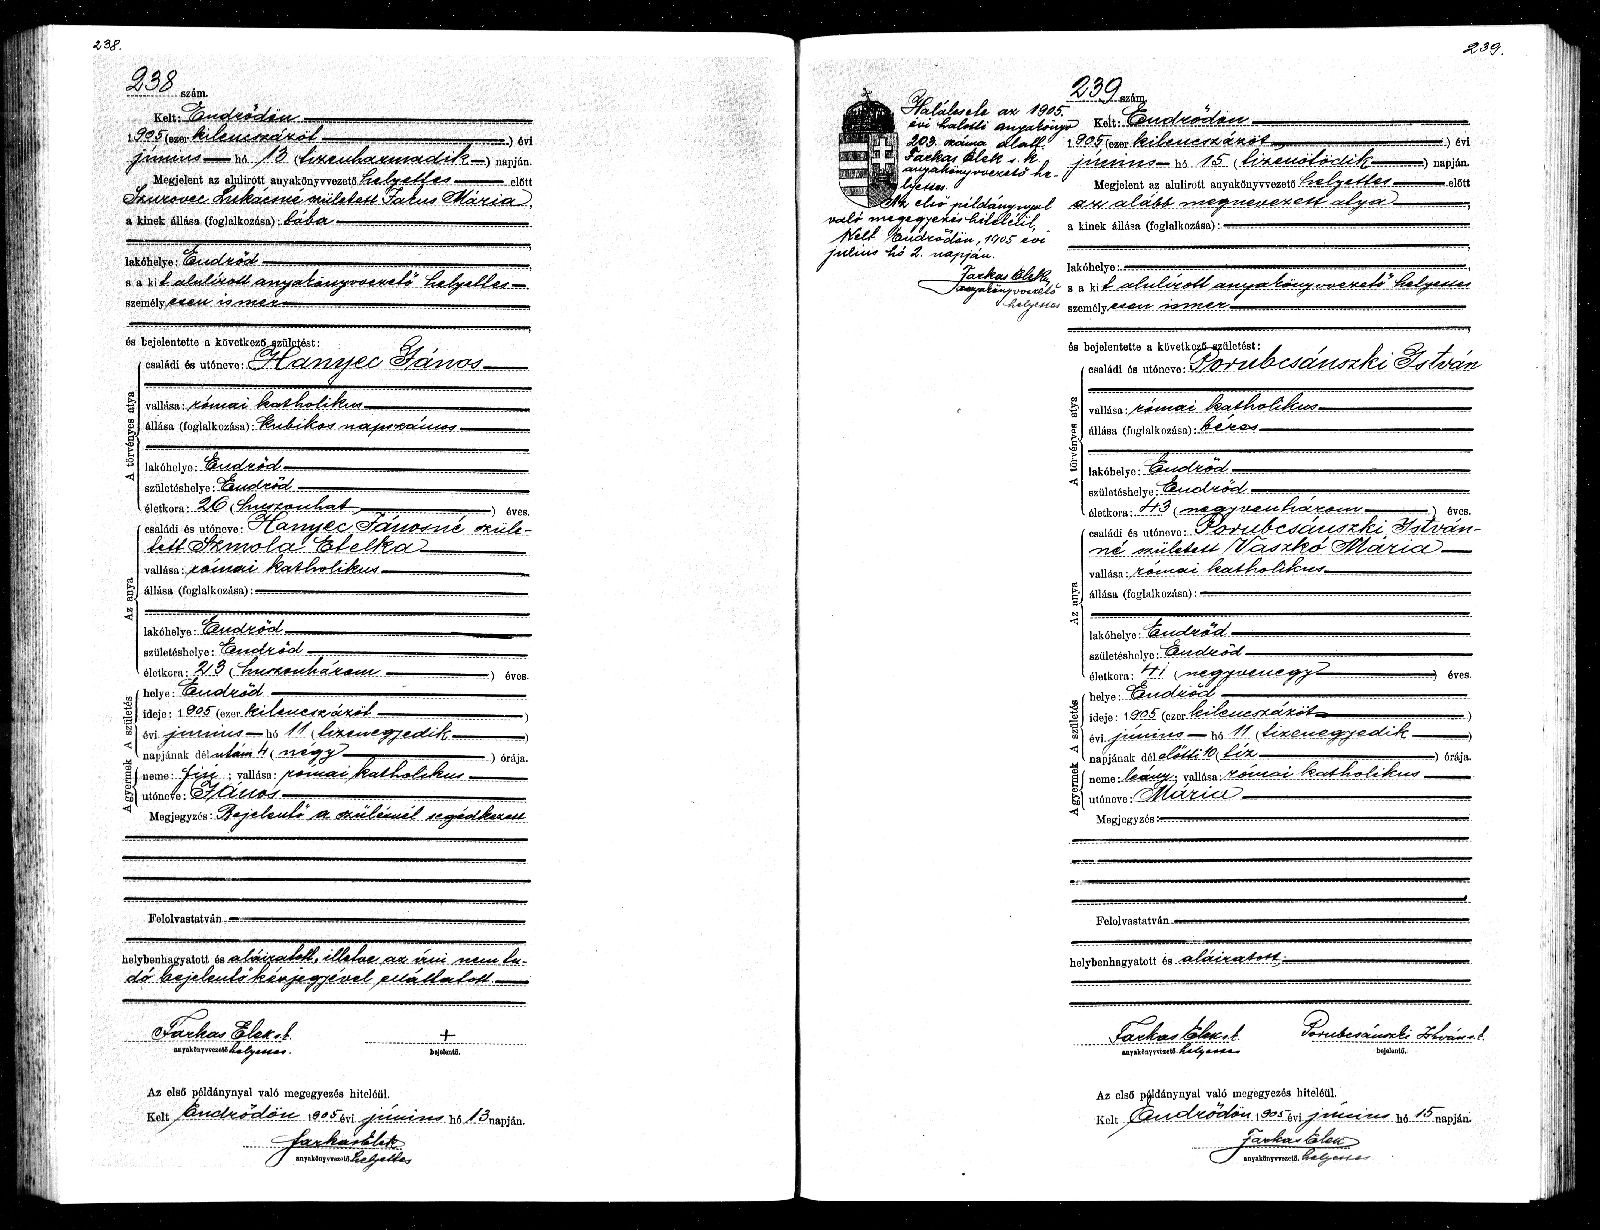 238.
238 szám.
Kelt: Endrődön
1905 (ezer kilenczszázöt) évi
június hó 13 (tizenharmadik) napján.
Megjelent az alulirott anyakönyvvezető helyettes előtt
Szurovec Lukácsné született Farus Mária,
a kinek állása (foglalkozása): bába
lakóhelye: Endrőd
s a kit alulírott anyakönyvvezető helyettes
személyesen ismer
és bejelentette a következő születést:
A törvényes atya
családi és utóneve: Hanyec János
vallása: római katholikus
állása (foglalkozása): kubikos napszámos
lakóhelye: Endrőd
születéshelye: Endrőd
életkora: 26 (huszonhat) éves.
Az anya
családi és utóneve: Hanyec Jánosné szüle-
tett Szmola Etelka
vallása: római katholikus
állása (foglalkozása):
lakóhelye: Endrőd
születéshelye: Endrőd
életkora: 23 (huszonhárom) éves.
A gyermek A születés
helye: Endrőd
ideje: 1905 (ezer kilenczszázöt)
évi június hó 11 (tizenegyedik)
napjának délután 4 (négy) órája.
neme: fiú; vallása: római katholikus
utóneve: János
Megjegyzés: Bejelentő a szülésnél segédkezett
Felolvastatván
helybenhagyatott és aláiratott, illetve az írni nem tu-
dó bejelentő kézjegyével elláttatott.
Farkas Elek s.k. +
anyakönyvvezető helyettes. bejelentő.
Az első példánynyal való megegyezés hiteléül.
Kelt Endrődön 1905 évi június hó 13 napján.
Farkas Elek
anyakönyvvezető helyettes
239.
239 szám.
Halálesete az 1905.
évi halotti anyakönyv
203. száma alatt.
Farkas Elek s.k.
anyakönyvvezető he-
lyettes.
Az első példánynyal
való megegyezés hiteléül,
Kelt Endrődön, 1905 évi
július hó 2. napján.
Farkas Elek
anyakönyvvezető
helyettes
Kelt: Endrődön
1905 (ezer kilenczszázöt) évi
június hó 15 (tizenötödik) napján.
Megjelent az alulirott anyakönyvvezető helyettes előtt
az alább megnevezett atya
a kinek állása (foglalkozása):
lakóhelye:
s a kit alulírott anyakönyvvezető helyettes
személyesen ismer
és bejelentette a következő születést:
A törvényes atya
családi és utóneve: Porubcsánszki István
vallása: római katholikus
állása (foglalkozása): béres
lakóhelye: Endrőd
születéshelye: Endrőd
életkora: 43 (negyvenhárom) éves.
Az anya
családi és utóneve: Porubcsánszki István-
né született Vaszkó Mária
vallása: római katholikus
állása (foglalkozása):
lakóhelye: Endrőd
születéshelye: Endrőd
életkora: 41 (negyvenegy) éves.
A gyermek A születés
helye: Endrőd
ideje: 1905 (ezer kilenczszázöt)
évi június hó 11 (tizenegyedik)
napjának délelőtti 10 tíz) órája.
neme: leány; vallása: római katholikus
utóneve: Mária
Megjegyzés:
Felolvastatván
helybenhagyatott és aláiratott;
Farkas Elek s.k. Porubcsánszki István s.k.
anyakönyvvezető helyettes bejelentő.
Az első példánynyal való megegyezés hiteléül.
Kelt Endrődön 1905 évi június hó 15 napján.
Farkas Elek
anyakönyvvezető. helyettes